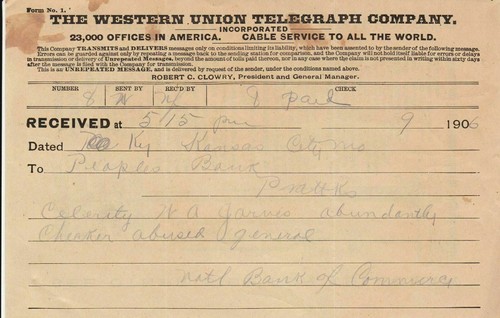 Form No. 1.
THE WESTERN UNION TELEGRAPH COMPANY.
INCORPORATED
23,000 OFFICES IN AMERICA. CABLE SERVICE TO ALL THE WORLD.
This Company TRANSMITS and DELIVERS messages only on conditions limiting its liability, which have been assented to by the sender of the following message.
Errors can be guarded against only by repeating a message back to the sending station for comparison, and the Company will not hold itself liable for errors or delays
in transmission or delivery of Unrepeated Messages, beyond the amount of tolls paid thereon, nor in any case where the claim is not presented in writing within sixty days
after the message is filed with the Company for transmission.
This is an UNREPEATED MESSAGE, and is delivered by request of the sender, under the conditions named above.
ROBERT C. CLOWRY, President and General Manager.
NUMBER SENT BY REC'D BY CHECK
8 9 paid
RECEIVED at 515 pm 9 1906
Dated Ky Kansas City Mo
To Peoples Bank
Pratt Ks
Celerity W A Jarvis abundantly
abused general
Natl Bank of Commerce